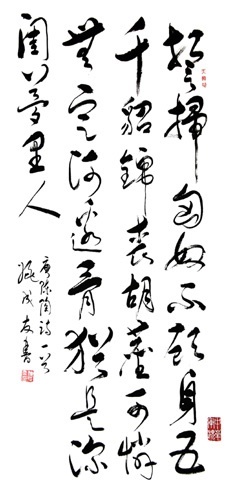 誓掃匈奴不顧身五
千貂錦喪胡塵可憐
無定河邊骨猶是深
閨夢里人
唐陳陶詩一首
成友書